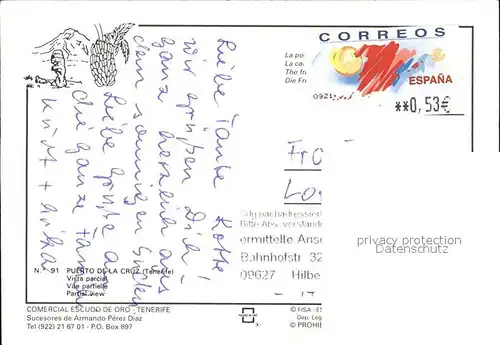 Liebe Tante Lotte
wir grüßen Dich!
ganz herzlich aus
dem sonnigen Süden
Liebe Grüße an
die ganze Familie
Kurt + Erika
N.° 91 PUERTO DE LA CRUZ (Tenerife)
Vista parcial
Vue partielle
Partial view
COMERCIAL ESCUDO DE ORO - TENERIFE
Sucesores de Armando Pérez Diaz
Tel (922) 21 67 01 - P.O. Box 897
La po
La ca
The fr
Die Fr
CORREOS
ESPAÑA
0921
**0,53€
Fr
Lo
Bitte Abs. verständ
ermittelte Ansc
Bahnhofstr 32
09627 Hilbe
privacy protection
Datenschutz
© FISA - Es
Dep. Leg
© PROHIB